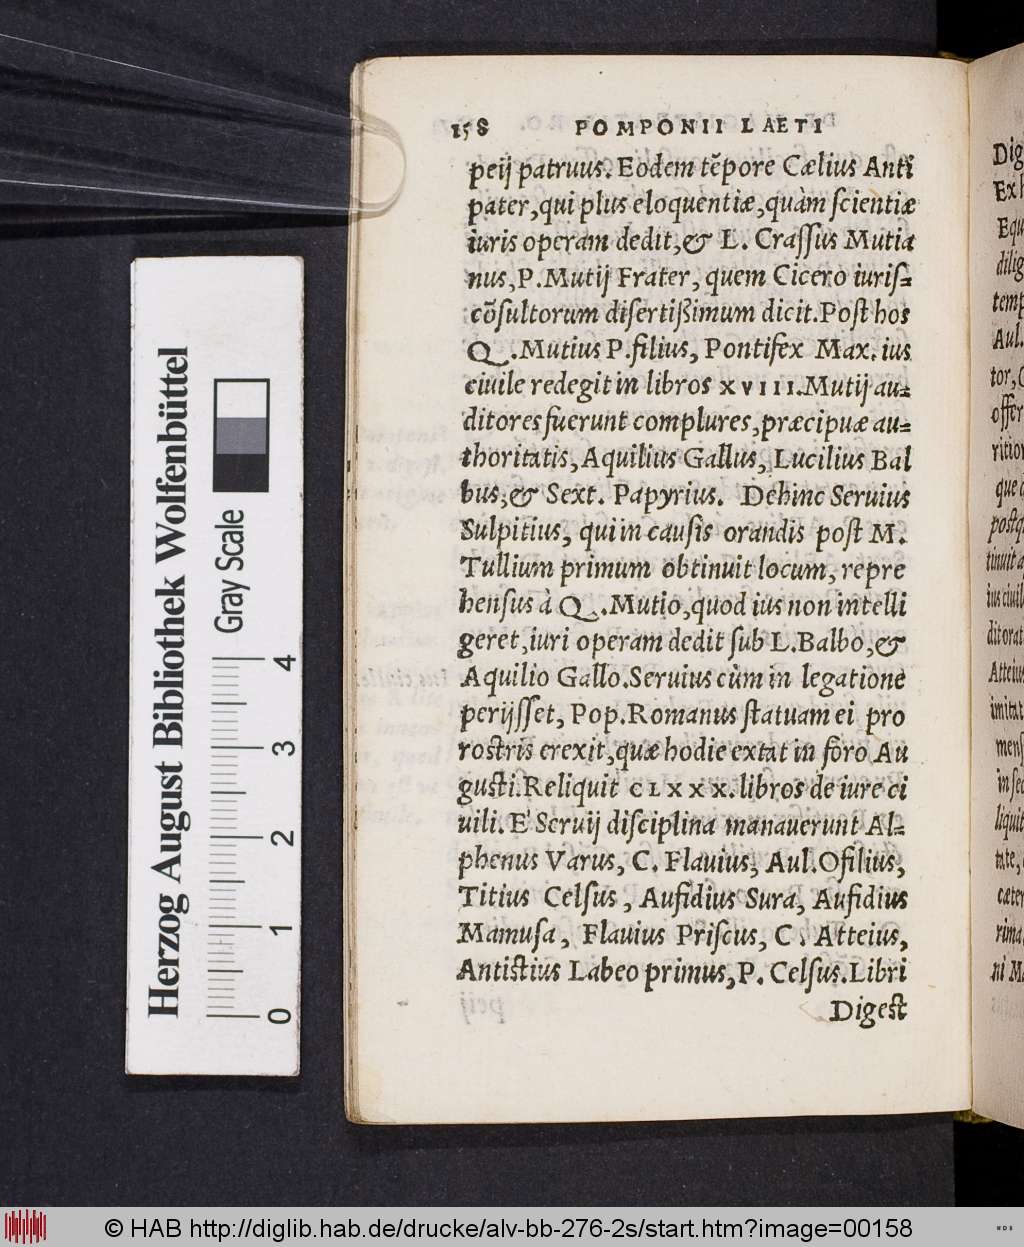 158 POMPONII LAETI
peij patruus. Eodem tẽpore Cælius Anti
pater, qui plus eloquentiæ, quàm ſcientiæ
iuris operam dedit, & L. Craſſus Mutia
nus, P. Mutij Frater, quem Cicero iuriſ-
cõſultorum diſertißimum dicit. Poſt hos
Q. Mutius P. filius, Pontifex Max. ius
ciuile redegit in libros XVIII. Mutij au-
ditores fuerunt complures, præcipuæ au-
thoritatis, Aquilius Gallus, Lucilius Bal
bus, & Sext. Papyrius. Dehinc Seruius
Sulpitius, qui in cauſis orandis poſt M.
Tullium primum obtinuit locum, repre
henſus à Q. Mutio, quod ius non intelli
geret, iuri operam dedit ſub L. Balbo, &
Aquilio Gallo. Seruius cùm in legatione
perijſſet, Pop. Romanus ſtatuam ei pro
roſtris erexit, quæ hodie extat in foro Au
guſti. Reliquit CLXXX. libros de iure ci
uili. E' Seruij diſciplina manauerunt Al-
phenus Varus, C. Flauius, Aul. Ofilius,
Titius Celſus, Aufidius Sura, Aufidius
Mamuſa, Flauius Priſcus, C. Atteius,
Antiſtius Labeo primus, P. Celſus. Libri
Digeſt
Dig
Ex
Equ
dilig
temp
Aul.
tor, C
offer
rition
que
poſtq
tinuit
ius ciuil
ditorat
Atteius
imitat
menſ
in ſec
liquit
tate,
cæter
rima
ni M
Herzog August Bibliothek Wolfenbüttel
Gray Scale
0 1 2 3 4
© HAB http://diglib.hab.de/drucke/alv-bb-276-2s/start.htm?image=00158